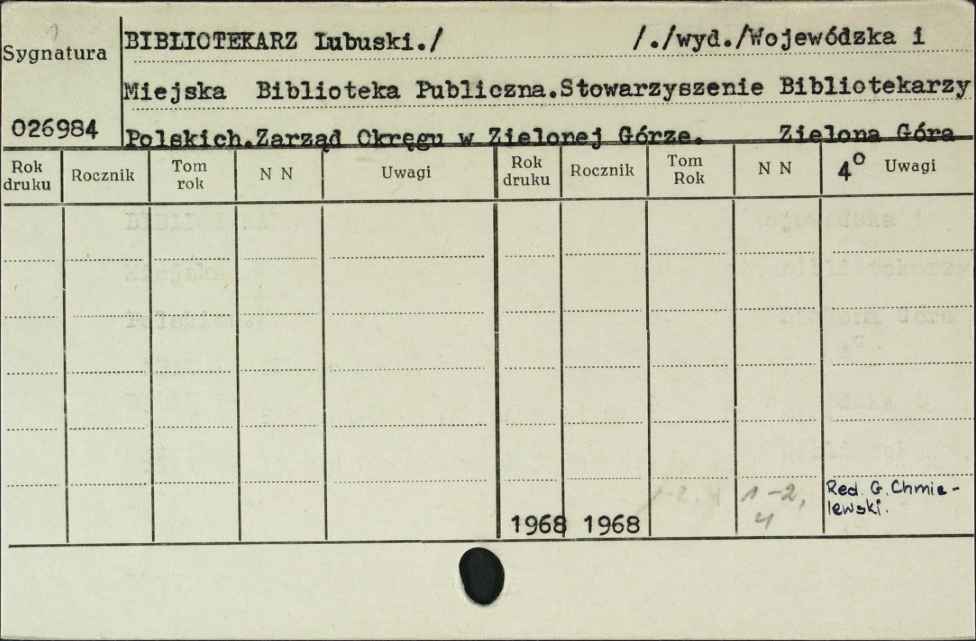 Sygnatura
BIBLIOTEKARZ Lubuski./ /./wyd./Wojewódzka i
Miejska Biblioteka Publiczna.Stowarzyszenie Bibliotekarzy
026984
Polskich.Zarząd Okręgu w Zielonej Górze. Zielona Góra
Rok druku Rocznik Tom rok N N Uwagi Rok druku Rocznik Tom Rok N N 4° Uwagi
1968 1968 1-2, 4 Red. G. Chmie-
lewski.